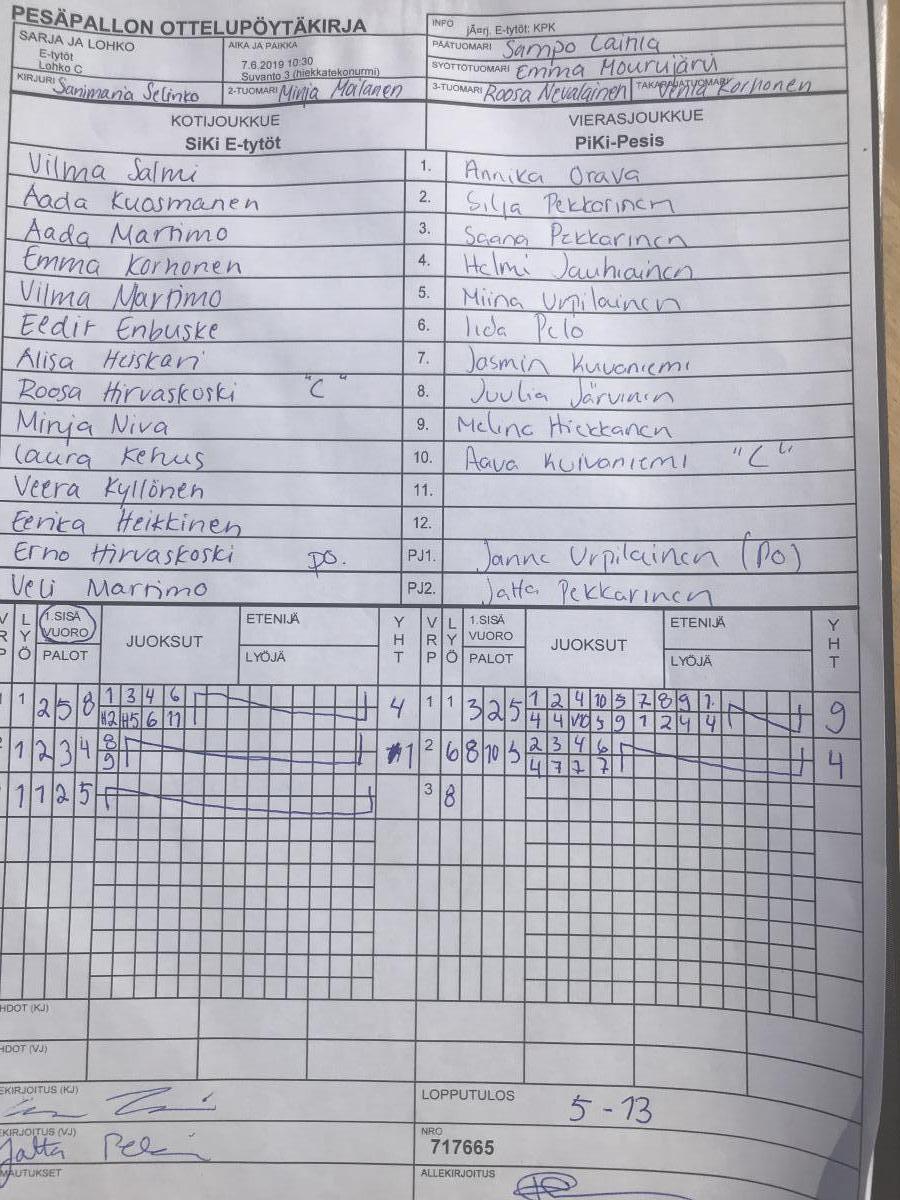 PESÄPALLON OTTELUPÖYTÄKIRJA
INFO jÃ¤rj. E-tytöt: KPK
SARJA JA LOHKO
E-tytöt
Lohko C
AIKA JA PAIKKA
7.6.2019 10:30
Suvanto 3 (hiekkatekonurmi)
PÄÄTUOMARI Sampo Lainla
SYÖTTÖTUOMARI Emma Mourujärvi
KIRJURI Sanimaria Selinko
2-TUOMARI Minja Mälänen
3-TUOMARI Roosa Nevalainen
TAKARAJATUOMARI Venla Korhonen
KOTIJOUKKUE
SiKi E-tytöt
VIERASJOUKKUE
PiKi-Pesis
Vilma Salmi 1. Annika Orava
Aada Kuosmanen 2. Silja Pekkarinen
Aada Marttimo 3. Saana Pekkarinen
Emma Korhonen 4. Helmi Jauhiainen
Vilma Marttimo 5. Miina Urpilainen
Eedit Enbuske 6. Iida Pelo
Alisa Heiskari 7. Jasmin Kuivaniemi
Roosa Hirvaskoski "C" 8. Juulia Järvinen
Minja Niva 9. Melina Hiekkanen
Laura Kehus 10. Aava Kuivaniemi "C"
Veera Kyllönen 11.
Eerika Heikkinen 12.
Erno Hirvaskoski po. PJ1. Janne Urpilainen (po)
Veli Marttimo PJ2. Jatta Pekkarinen
VRP LYÖ 1.SISÄ VUORO PALOT JUOKSUT ETENIJÄ LYÖJÄ YHT VRP LYÖ 1.SISÄ VUORO PALOT JUOKSUT ETENIJÄ LYÖJÄ YHT
1 1 2 5 8 1 3 4 6 4 1 1 3 2 5 1 2 4 10 5 7 8 9 1 9
H2 H5 6 11 4 4 V10 5 9 1 2 4 4
2 1 2 3 4 8 1 2 6 8 10 5 2 3 4 6 4
9 4 7 7 7
1 1 2 5 3 8
HDOT (KJ)
HDOT (VJ)
EKIRJOITUS (KJ)
LOPPUTULOS 5 - 13
EKIRJOITUS (VJ) Jatta
NRO
717665
MAUTUKSET
ALLEKIRJOITUS